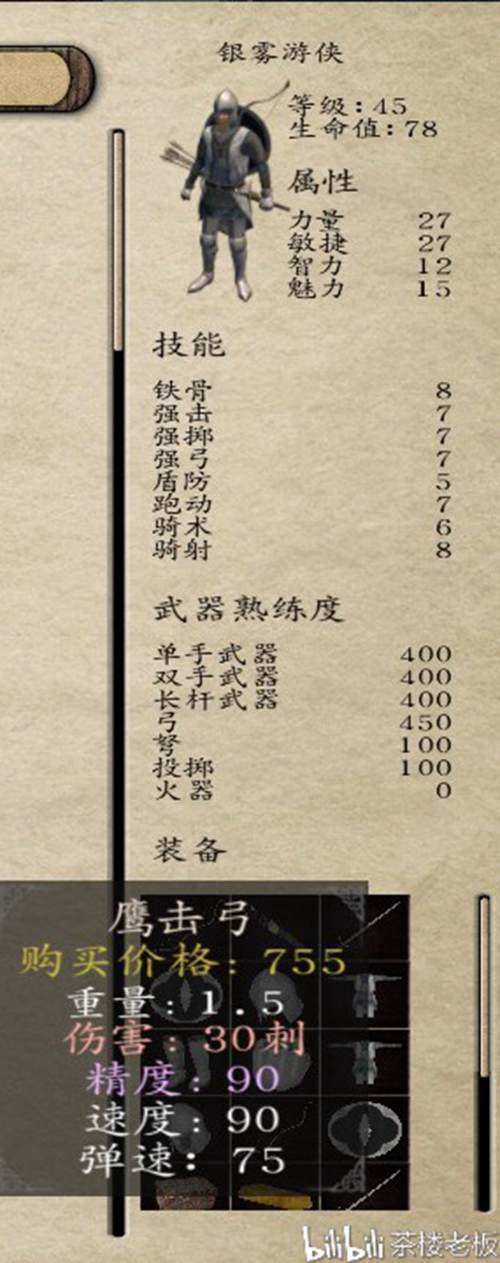 银雾游侠
等级：45
生命值：78
属性
力量 27
敏捷 27
智力 12
魅力 15
技能
铁骨 8
强击 7
强掷 7
强弓 7
盾防 5
跑动 7
骑术 6
骑射 8
武器熟练度
单手武器 400
双手武器 400
长杆武器 400
弓 450
弩 100
投掷 100
火器 0
装备
鹰击弓
购买价格：755
重量：1.5
伤害：30刺
精度：90
速度：90
弹速：75
bilibili 茶楼老板